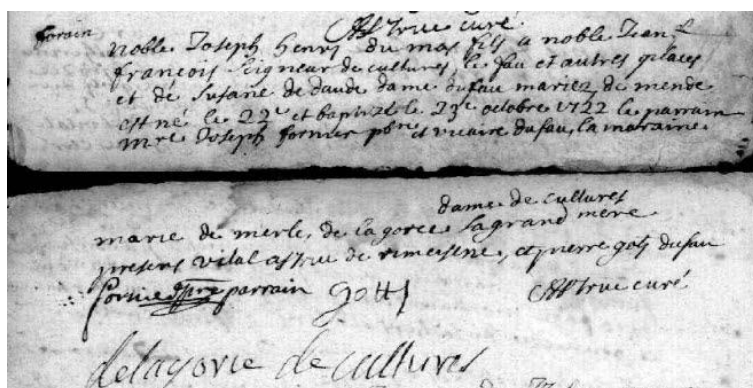 Astruc curé
forain
noble Joseph henri du mas fils a noble Jean
françois seigneur de cultures, le fau et autres places
et de susane de daude dame du fau mariez de mende
est né le 22e et baptizé le 23e octobre 1722 le parrain
mre Joseph fornier pbre et vicaire du fau, la maraine
dame de cultures
marie de merle de lagorce sa grand mere
presens vital astruc de rimeisene, et pierre gots du fau
fornier pbre parrain gotts Astruc curé
delagorce de cultures